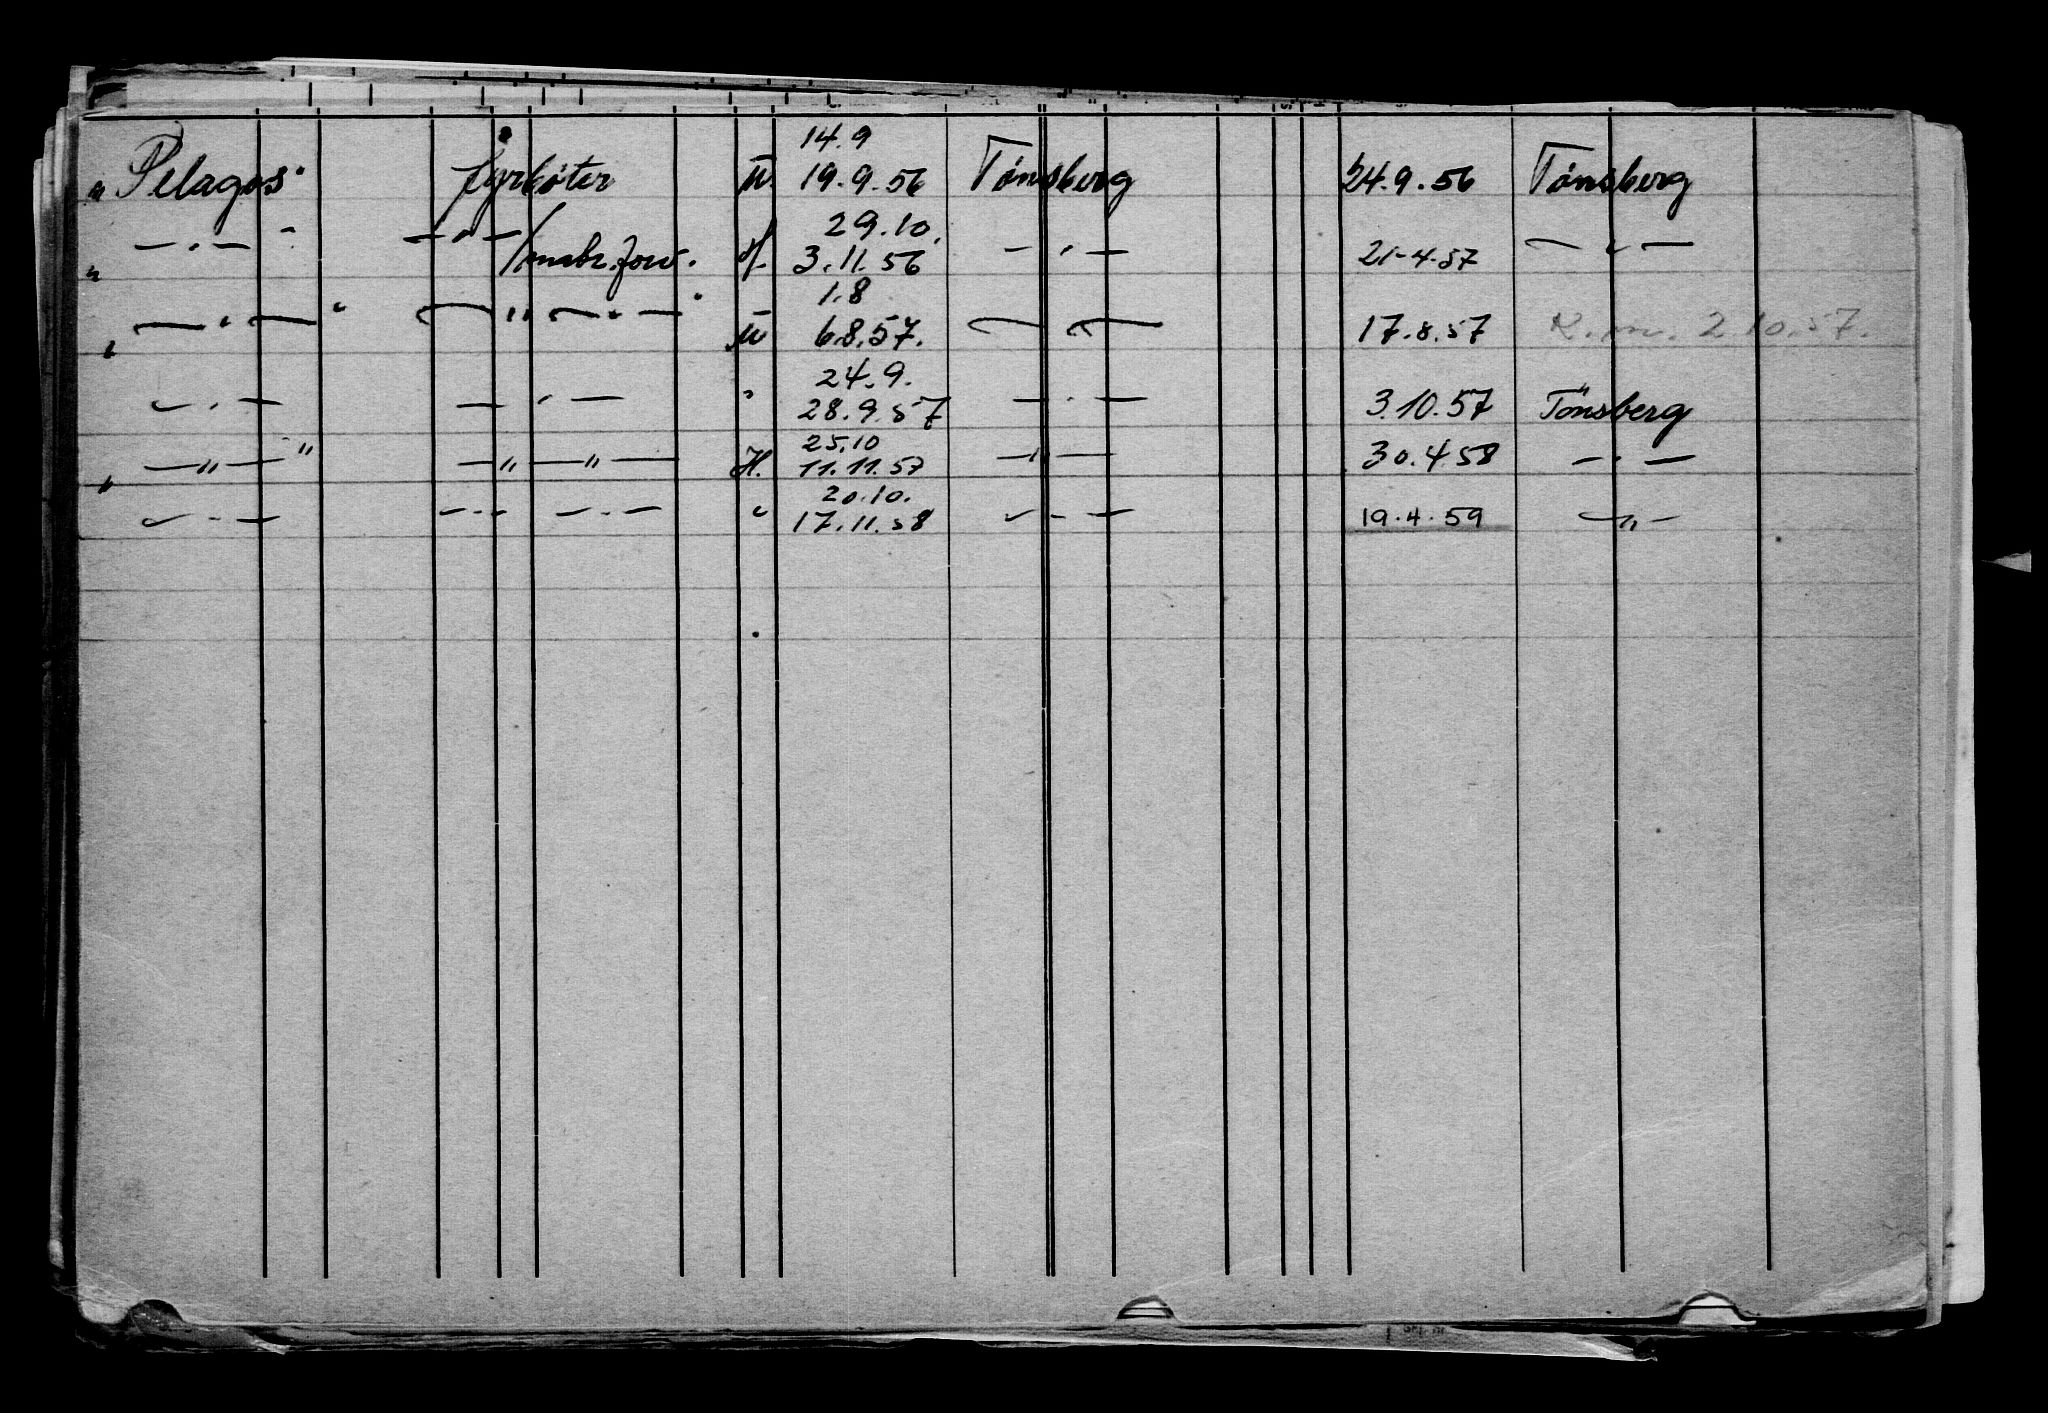 14.9
"Pelagos" fyrbøter U. 19.9.56 Tønsberg 24.9.56 Tønsberg
29.10.
— " — " — " — /smøbr.forv. H. 3.11.56 — " — 21-4.57 — " —
1.8
" — " — " — " — " — U 6.8.57. — " — 17.8.57 R.m. 2.10.57.
24.9.
— " — — " — " 28.9.57 — " — 3.10.57 Tönsberg
25.10
" — " — " — " — " — H. 11.11.57 — " — 30.4.58 — " —
20.10.
— " — — " — — " — " 17.11.58 — " — 19.4.59 — " —